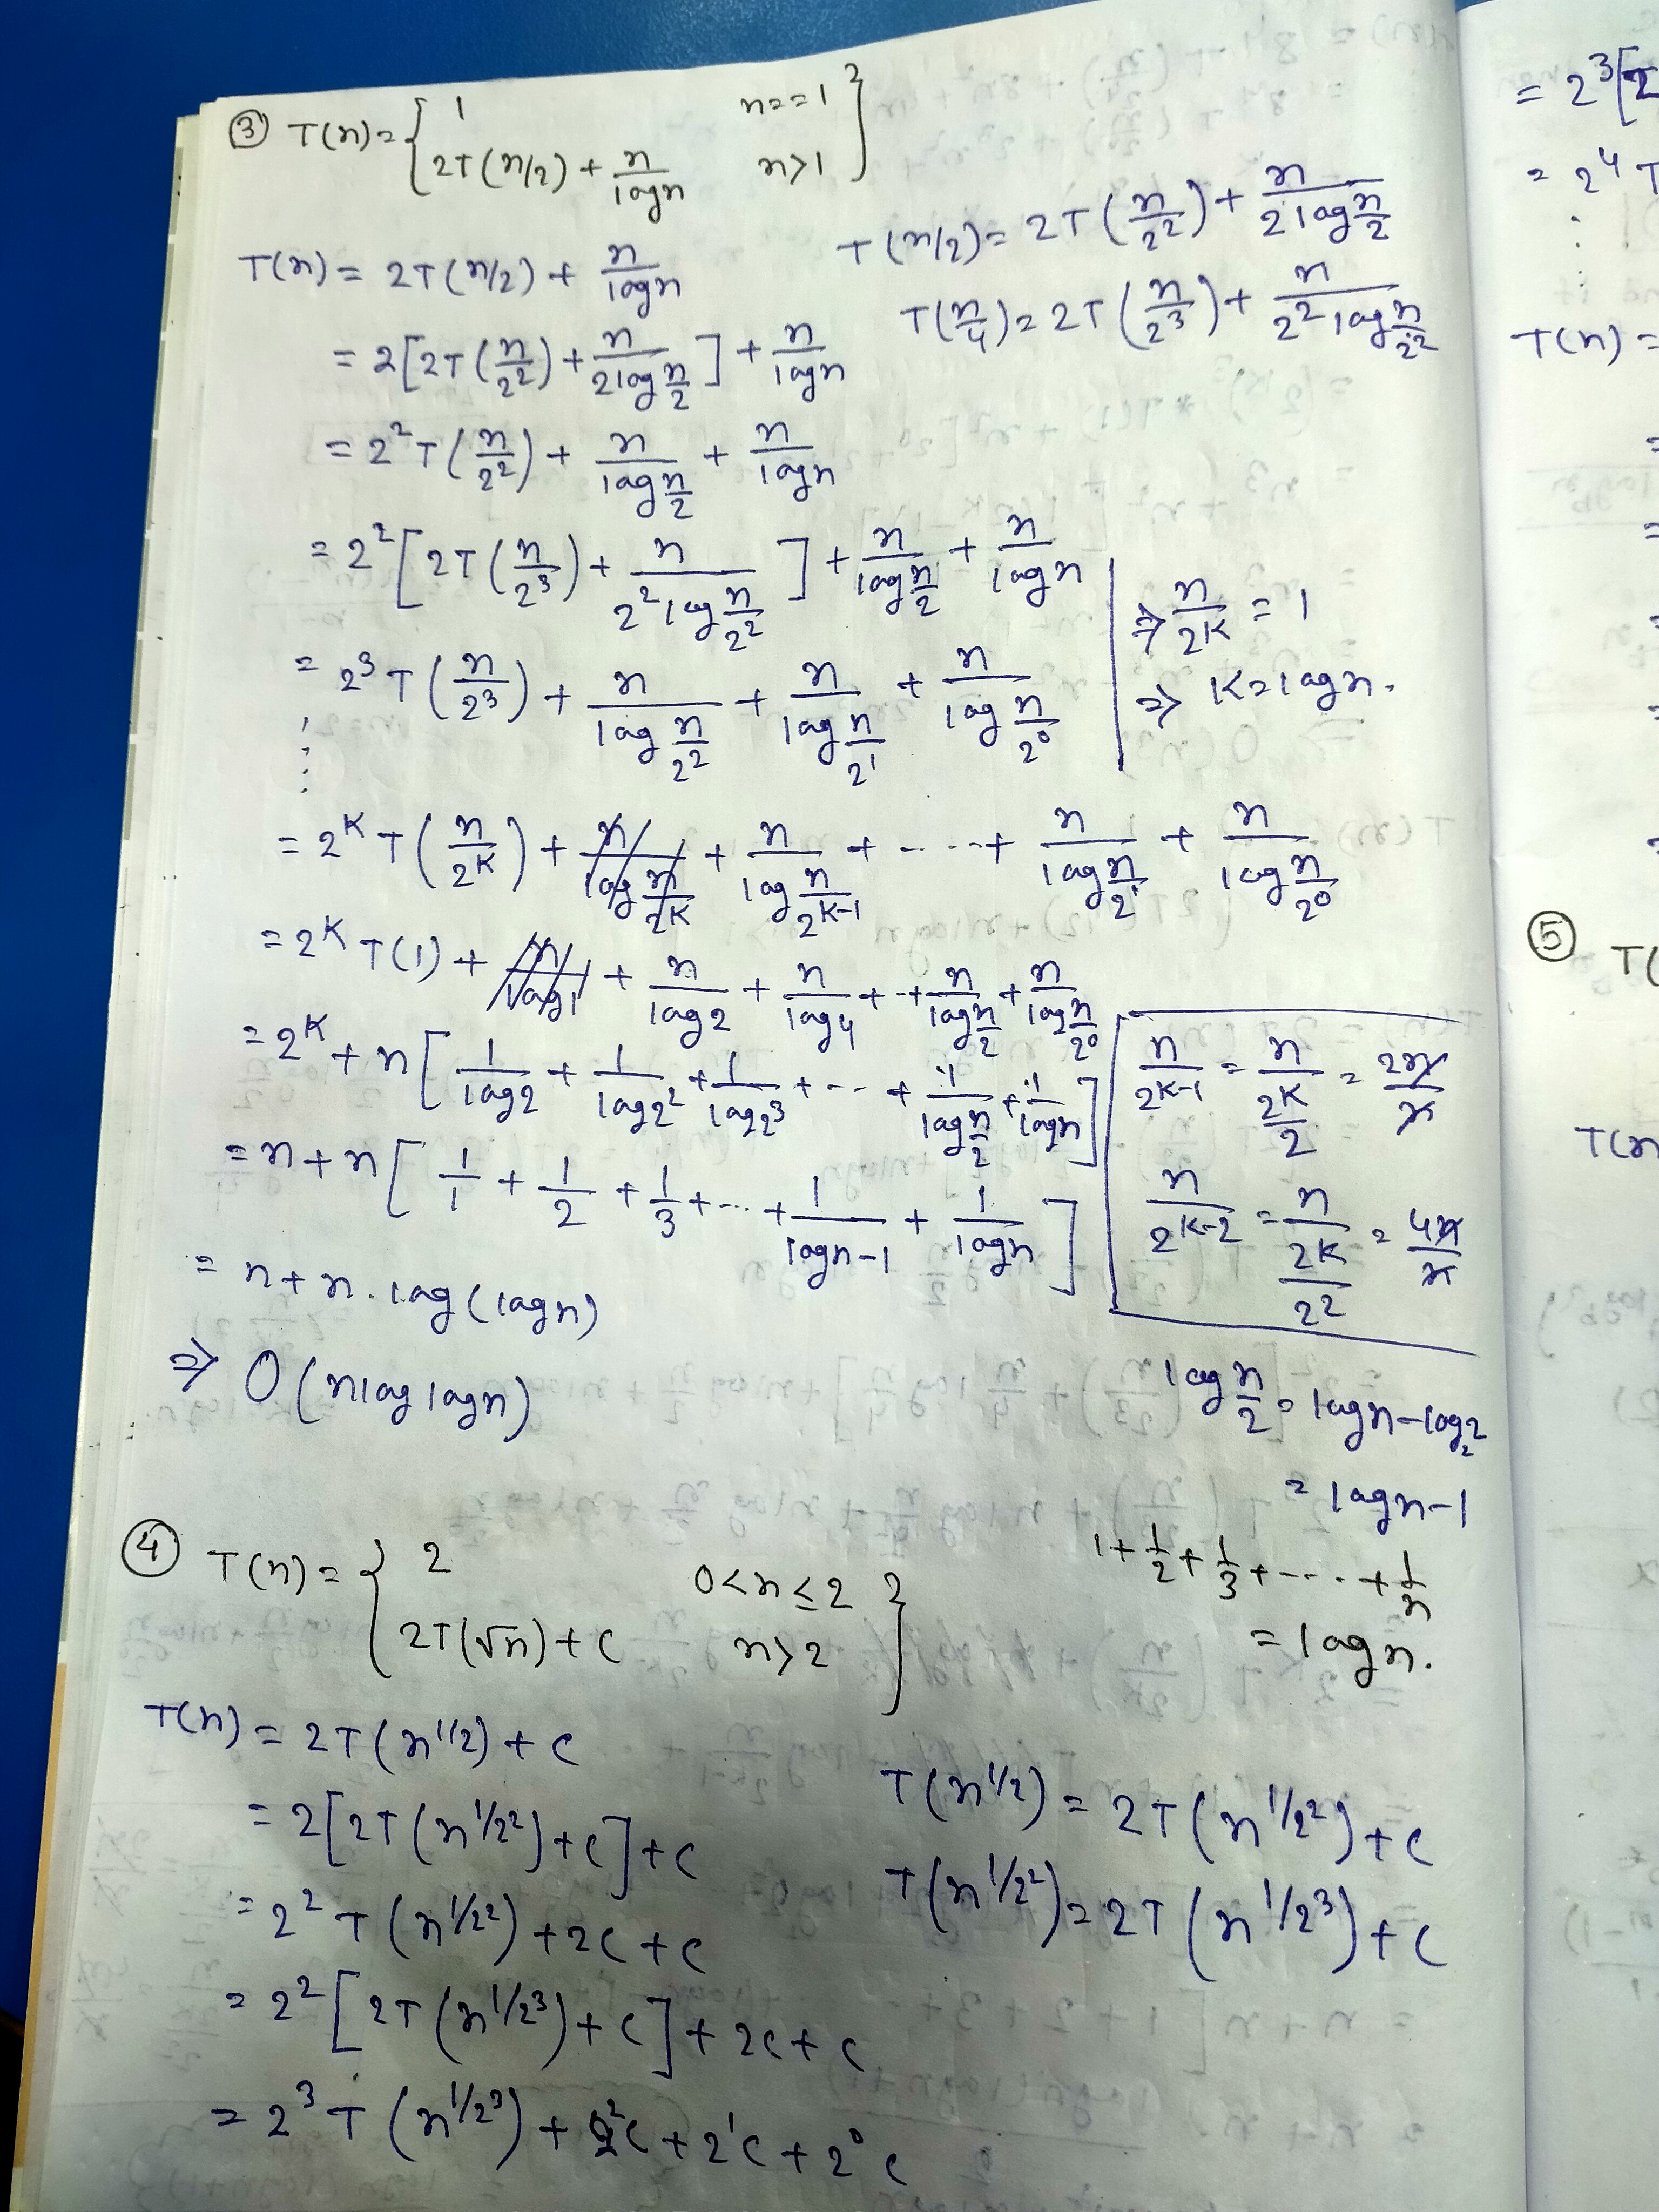 ③ T(n) = { 1 n==1 }
{ 2T(n/2) + n/logn n>1 }
T(n) = 2T(n/2) + n/logn
T(n/2) = 2T(n/2²) + n/(2log n/2)
T(n/4) = 2T(n/2³) + n/(2² log n/2²)
= 2[2T(n/2²) + n/(2log n/2)] + n/logn
= 2²T(n/2²) + n/(log n/2) + n/logn
= 2²[2T(n/2³) + n/(2² log n/2²)] + n/(log n/2) + n/logn
⇒ n/2ᴷ = 1
⇒ K = logn.
= 2³T(n/2³) + n/(log n/2²) + n/(log n/2¹) + n/(log n/2⁰)
⋮
= 2ᴷT(n/2ᴷ) + n/(log n/2ᴷ) + n/(log n/2ᴷ⁻¹) + ---- + n/(log n/2¹) + n/(log n/2⁰)
= 2ᴷT(1) + n/log1 + n/log2 + n/log4 + -- + n/(log n/2) + n/(log n/2⁰)
= 2ᴷ + n[1/log2 + 1/log2² + 1/log2³ + --- + 1/(log n/2) + 1/logn]
n/2ᴷ⁻¹ = n/(2ᴷ/2) = 2n/n
= n + n[1/1 + 1/2 + 1/3 + --- + 1/(logn-1) + 1/logn]
n/2ᴷ⁻² = n/(2ᴷ/2²) = 4n/n
= n + n.log(logn)
⇒ O(nloglogn)
log n/2 = logn - log₂2
= logn-1
1 + 1/2 + 1/3 + ---- + 1/n
= logn.
④ T(n) = { 2 0<n≤2 }
{ 2T(√n)+C n>2 }
T(n) = 2T(n^1/2) + C
T(n^1/2) = 2T(n^1/2²) + C
= 2[2T(n^1/2²) + C] + C
T(n^1/2²) = 2T(n^1/2³) + C
= 2²T(n^1/2²) + 2C + C
= 2²[2T(n^1/2³) + C] + 2C + C
= 2³T(n^1/2³) + 2²C + 2¹C + 2⁰C
= 2³[2
= 2⁴T
⋮
T(n) =
⑤ T(
T(n